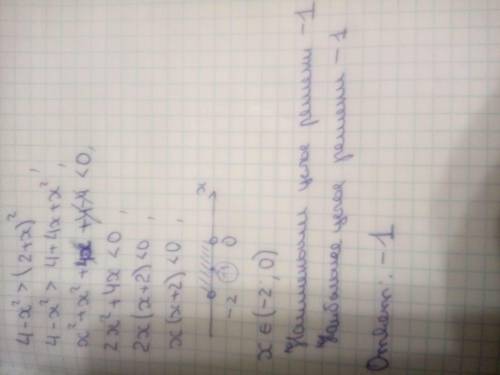 4-x²>(2+x)²
4-x²>4+4x+x²,
x²+x²+4x+4-4<0,
2x²+4x<0,
2x(x+2)<0,
x(x+2)<0,
-2 -1 0 x
x∈(-2,0)
Наименьшее целое решение -1
Наибольшее целое решение -1
Ответ: -1